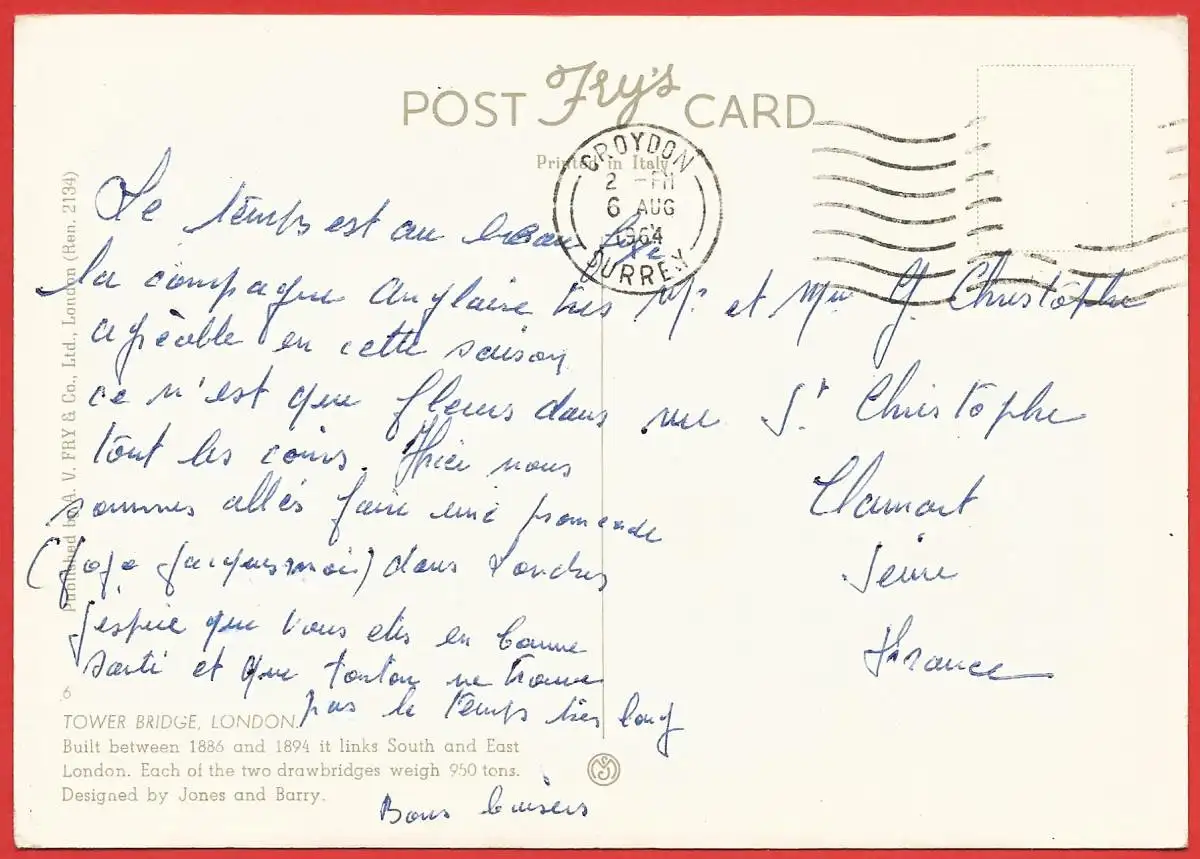 POST Fry's CARD
Printed in Italy
CROYDON
2 - PM
6 AUG
1964
SURREY
Le temps est au beau fixe
la campagne Anglaise très
agréable en cette saison
ce n'est que fleurs dans
tout les coins. Hier nous
sommes allés faire une promenade
(Jojo Jacques moi) dans Londres
J'espère que vous etes en bonne
santé et que tonton ne trouve
pas le temps très long
Bons baisers
Mr et Mme J. Christôphe
rue St Christôphe
Clamart
Seine
France
Published by A. V. FRY & Co., Ltd., London (Ren. 2134)
6
TOWER BRIDGE, LONDON.
Built between 1886 and 1894 it links South and East
London. Each of the two drawbridges weigh 950 tons.
Designed by Jones and Barry.